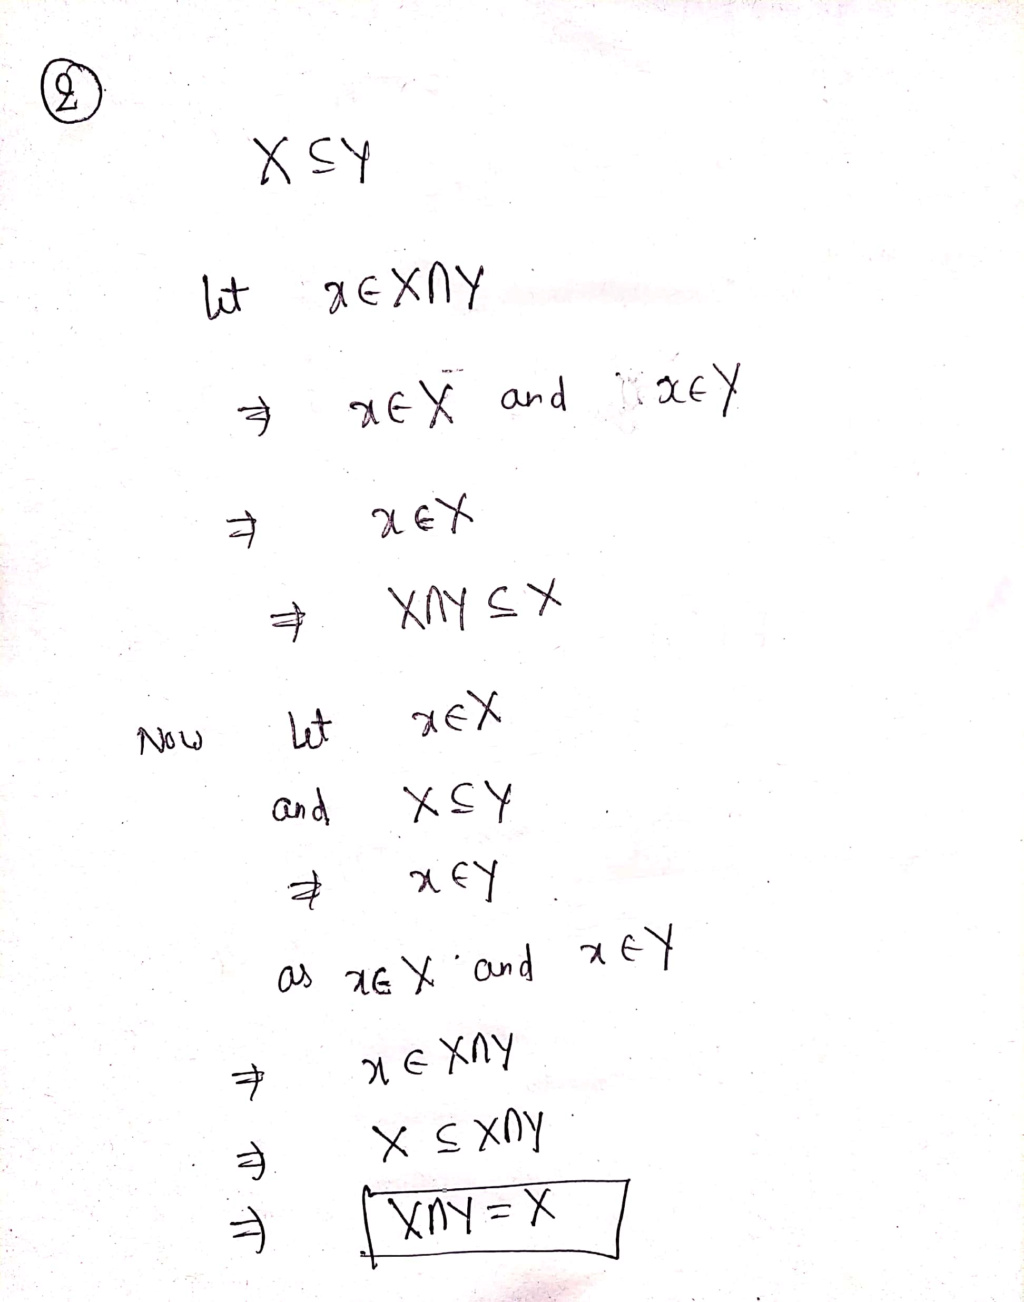 ②
X ⊆ Y
let x ∈ X∩Y
⇒ x ∈ X and x ∈ Y
⇒ x ∈ X
⇒ X∩Y ⊆ X
Now let x ∈ X
and X ⊆ Y
⇒ x ∈ Y
as x ∈ X and x ∈ Y
⇒ x ∈ X∩Y
⇒ X ⊆ X∩Y
⇒ X∩Y = X